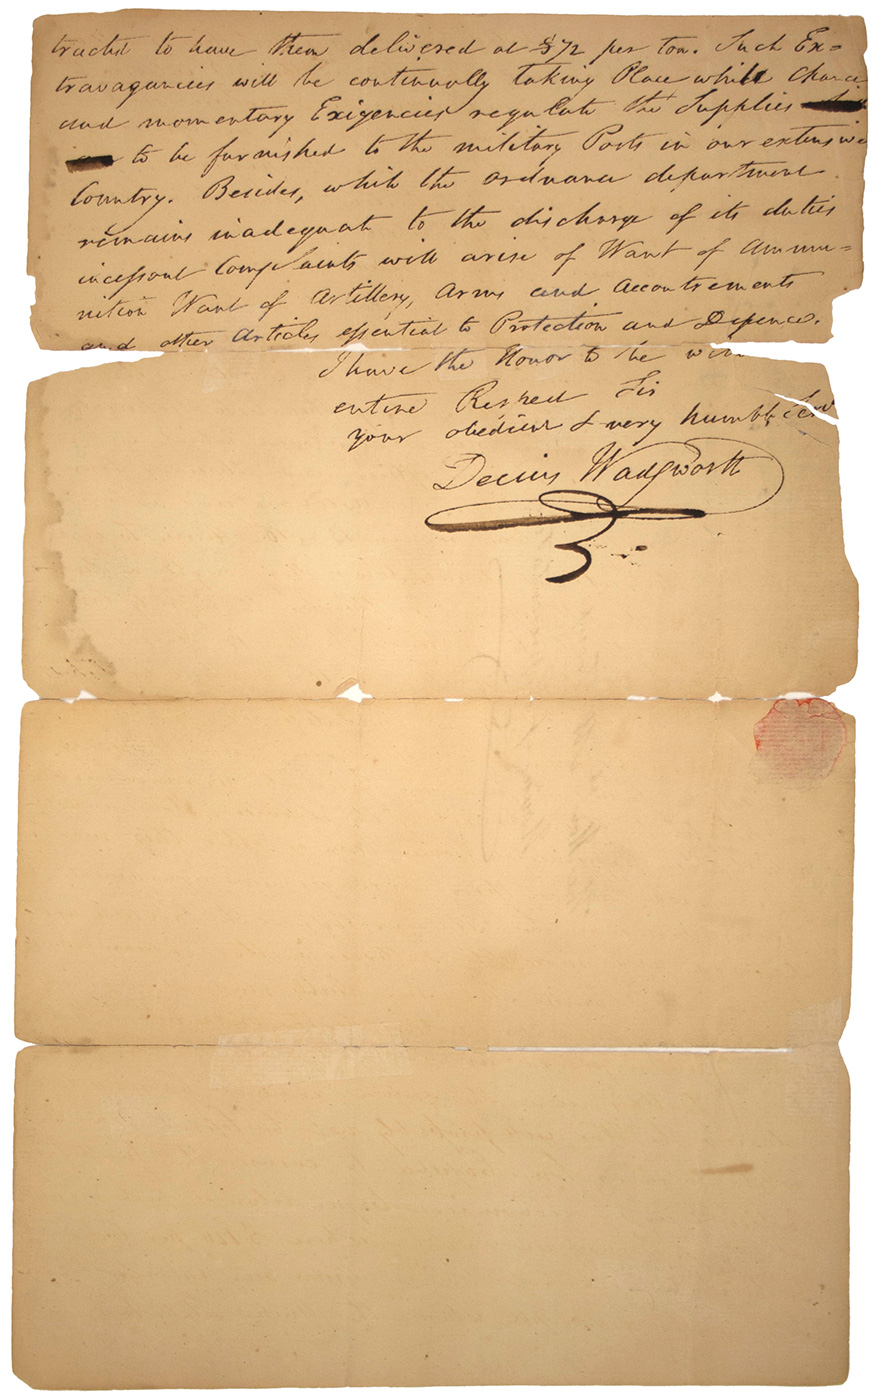 tracted to have them delivered at $72 per ton. Such Ex=
travagancies will be continually taking Place while Chance
and momentary Exigencies regulate the Supplies
to be furnished to the military Posts in our extensive
Country. Besides, while the ordnance department
remains inadequate to the discharge of its duties
incessant Complaints will arise of Want of Ammu=
nition Want of Artillery, Arms and Accoutrements
and other Articles essential to Protection and Defence.
I have the Honor to be with
entire Respect Sir
your obedient & very humble Serv
Decius Wadsworth